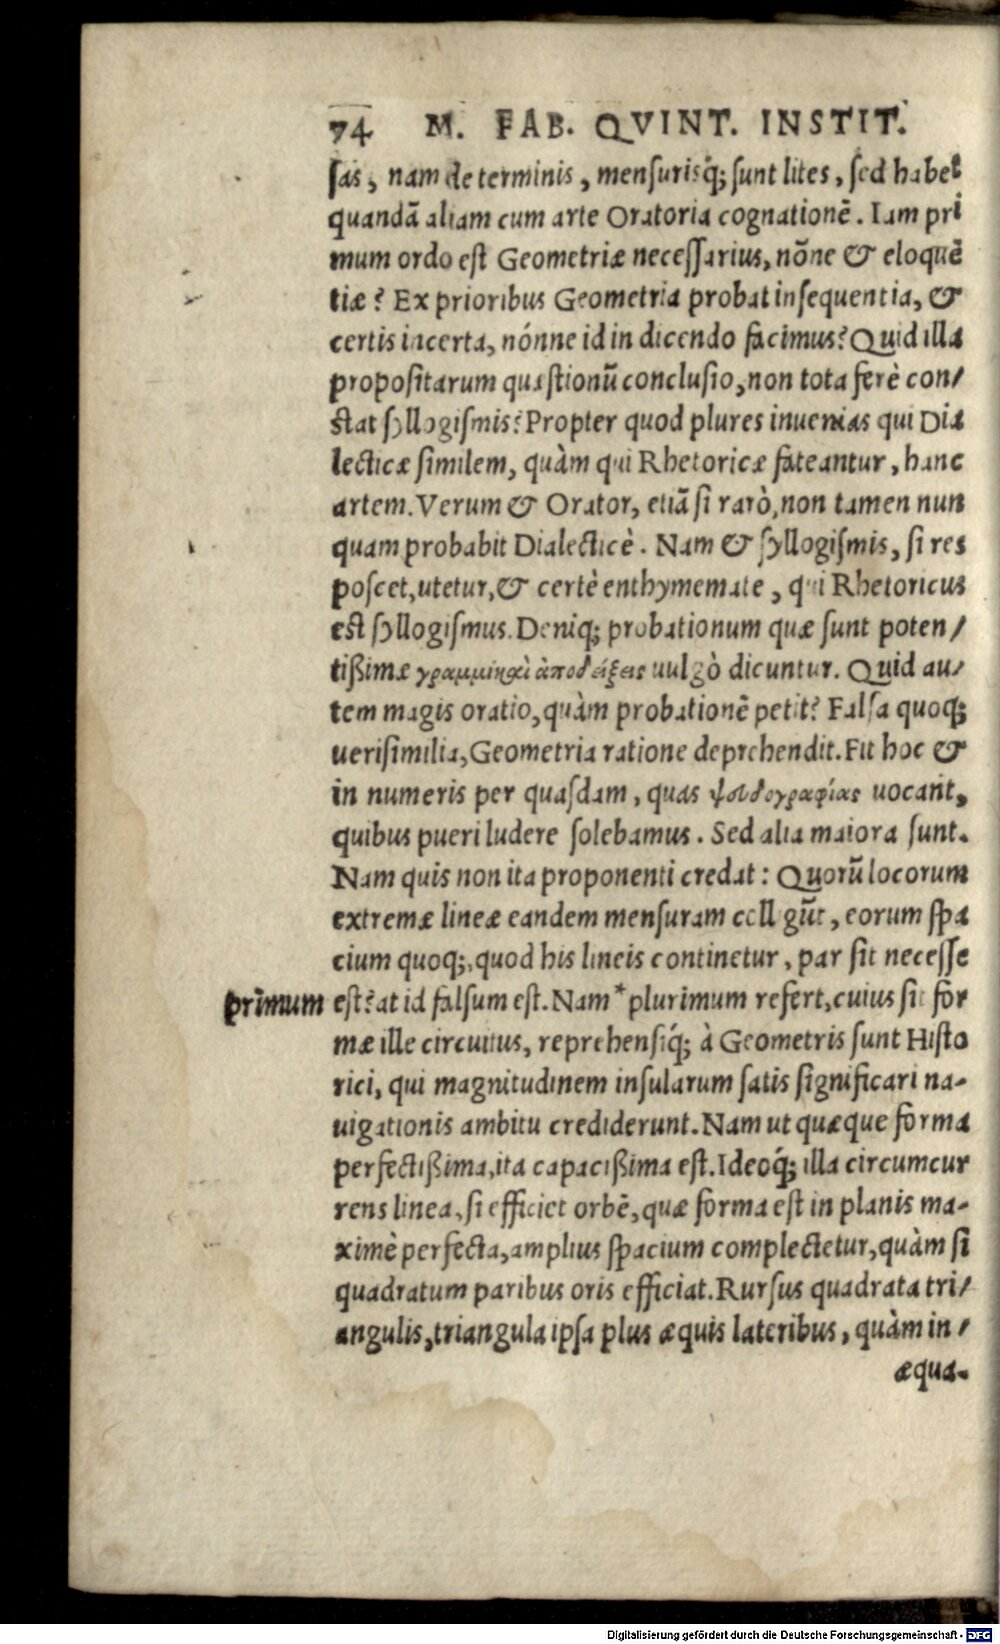 74 M. FAB. QVINT. INSTIT.
sas, nam de terminis, mensurisq́; sunt lites, sed habet
quandā aliam cum arte Oratoria cognationē. Iam pri
mum ordo est Geometriæ necessarius, nōne & eloquē
tiæ? Ex prioribus Geometria probat insequentia, &
certis incerta, nónne id in dicendo facimus? Quid illa
propositarum quæstionū conclusio, non tota ferè con/
stat syllogismis? Propter quod plures inuenias qui Dia
lecticæ similem, quàm qui Rhetoricæ fateantur, hanc
artem. Verum & Orator, etiā si rarò, non tamen nun
quam probabit Dialecticè. Nam & syllogismis, si res
poscet, utetur, & certè enthymemate, qui Rhetoricus
est syllogismus. Deniq; probationum quæ sunt poten/
tißimæ γραμμικαὶ ἀποδείξεις uulgò dicuntur. Quid au/
tem magis oratio, quàm probationē petit? Falsa quoq;
uerisimilia, Geometria ratione deprehendit. Fit hoc &
in numeris per quasdam, quas ψευδογραφίας uocant,
quibus pueri ludere solebamus. Sed alia maiora sunt.
Nam quis non ita proponenti credat: Quorū locorum
extremæ lineæ eandem mensuram collıgūt, eorum spa
cium quoq;, quod his lineis continetur, par sit necesse
primum est? at id falsum est. Nam* plurimum refert, cuius sit for
mæ ille circuitus, reprehensiq́; à Geometris sunt Histo
rici, qui magnitudinem insularum satis significari na-
uigationis ambitu crediderunt. Nam ut quæque forma
perfectißima, ita capacißima est. Ideoq́; illa circumcur
rens linea, si efficiet orbē, quæ forma est in planis ma-
ximè perfecta, amplius spacium complectetur, quàm si
quadratum paribus oris efficiat. Rursus quadrata tri/
angulis, triangula ipsa plus æquis lateribus, quàm in/
æqua-
Digitalisierung gefördert durch die Deutsche Forschungsgemeinschaft - DFG